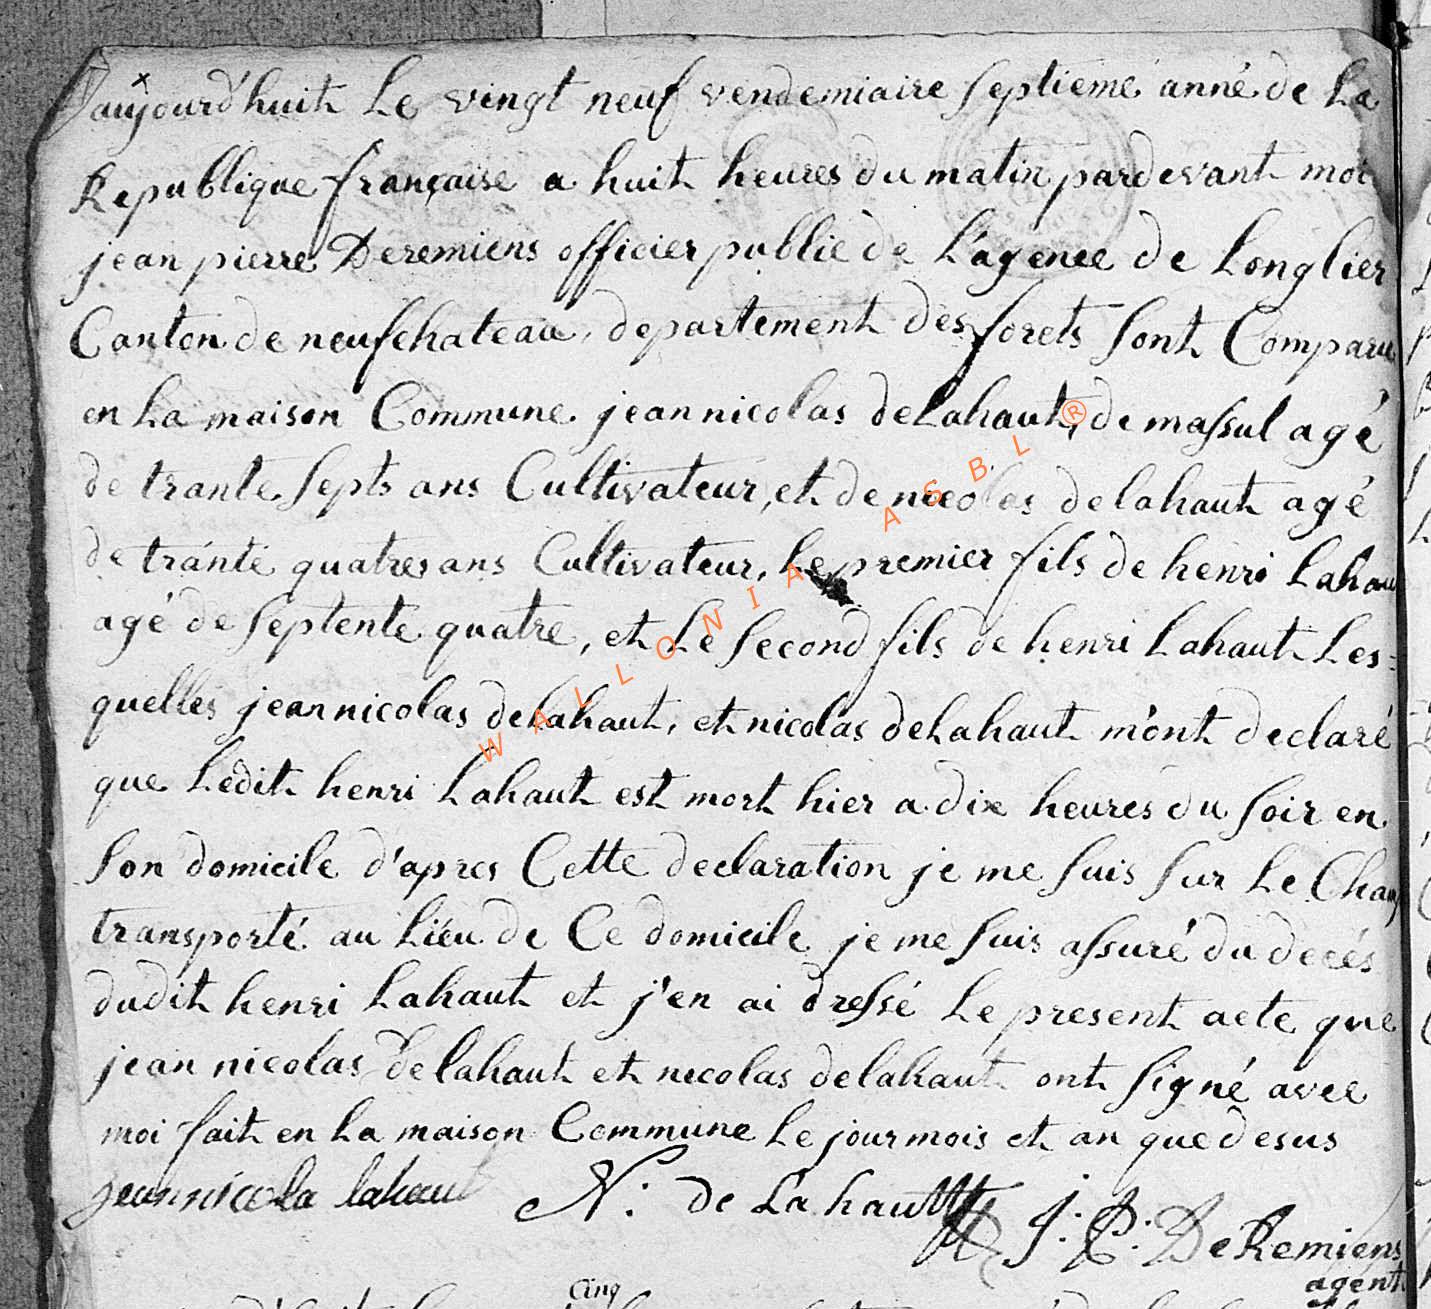 aujourd'huit Le vingt neuf vendemiaire septieme anné de La
Republique française a huit heures du matin pardevant moi
jean pierre Deremiens officier public de L'agence de Longlier
Canton de neufchateau, departement des forets sont Comparu
en La maison Commune jean nicolas deLahaut, de massul agé
de trante septs ans Cultivateur, et de nicolas delahaut agé
de trante quatres ans Cultivateur, Le premier fils de henri Lahaut
agé de septente quatre, et Le second fils de henri Lahaut Les=
quelles jean nicolas deLahaut, et nicolas deLahaut m'ont declaré
que Ledit henri Lahaut est mort hier a dix heures du soir en
son domicile d'apres Cette declaration je me suis sur Le Champ
transporté au Liéu de Ce domicile je me suis assuré du decés
dudit henri Lahaut et j'en ai dressé Le present acte que
jean nicolas delahaut et necolas delahaut ont signé avec
moi fait en La maison Commune Le jour mois et an que desus
jean nicola lahaut N: de Lahaut J: P: DeRemiens
agent
Cinq
WALLONIA ASBL ®